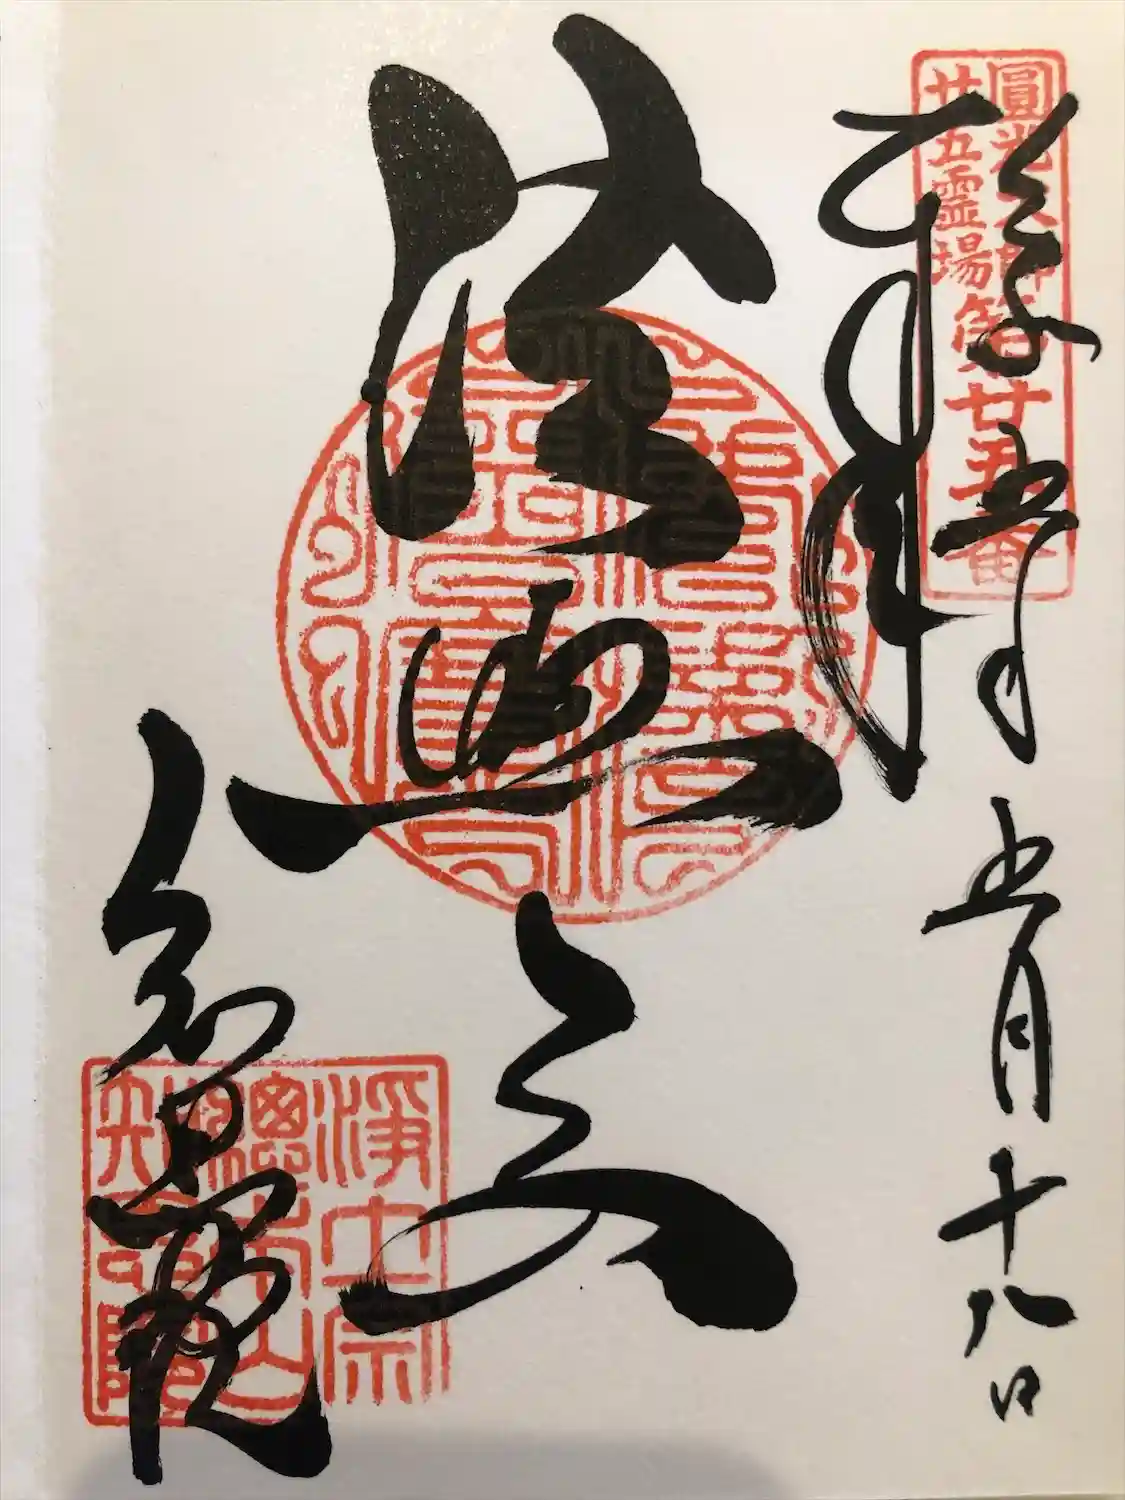 圓光大師
廿五霊場
第廿五番
令和五年五月十八日
奉拝
法然上人
知恩院
淨土宗
總本山
知恩院